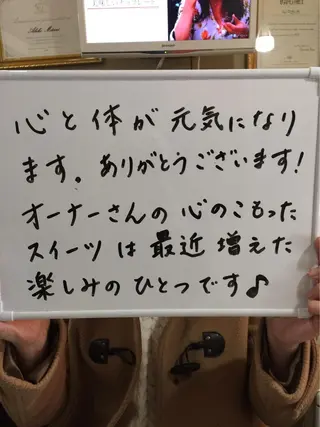 心と体が元気になり
ます。ありがとうございます!
オーナーさんの心のこもった
スイーツは最近増えた
楽しみのひとつです♪